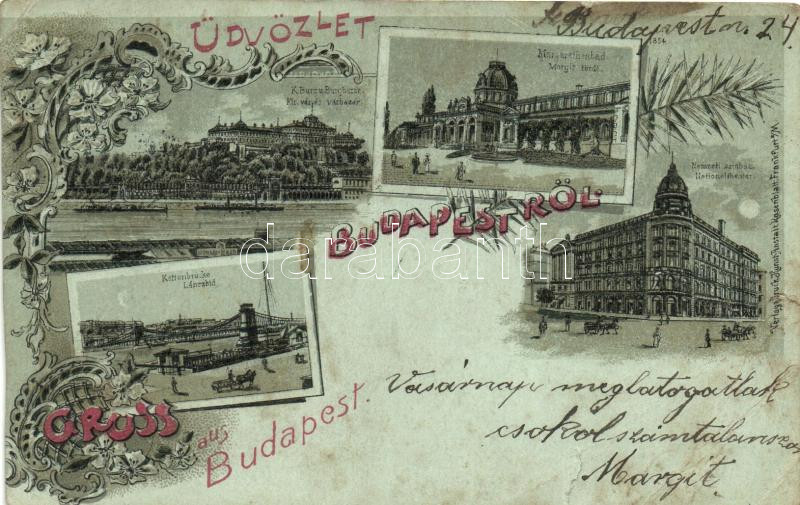 ÜDVÖZLET
Budapest 24
K. Burg u. Burgbazar.
Kir. várpal. Várbazár.
Margarethenbad.
Margit fürdő.
Nemzeti színház.
Nationaltheater.
BUDAPESTRŐL.
Kettenbrücke
Lánczhíd.
GRUSS
aus
Budapest.
Vasárnap meglatogatlak
csokol számtalanszor
Margit.
Kunst Anstalt Rosenblatt Frankfurt a/M
darabanth